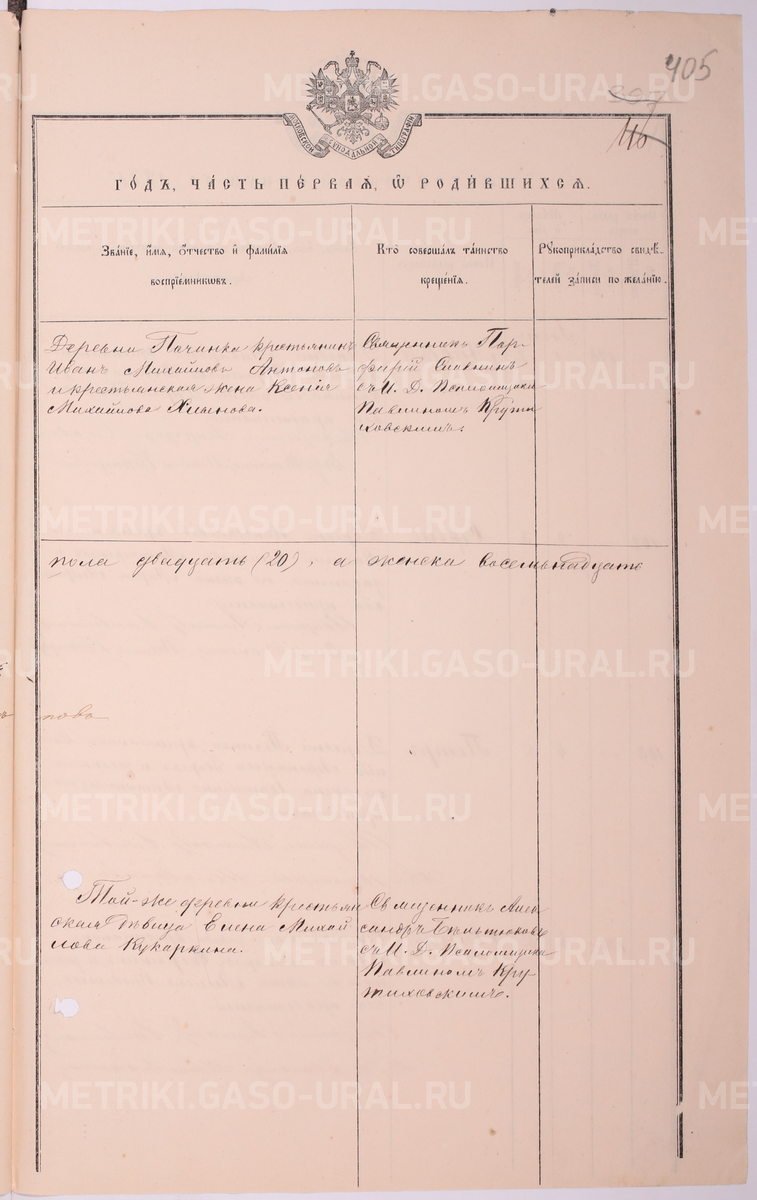 405
116
МОСКОВСКОЙ СѴНОДАЛЬНОЙ ТИПОГРАФІИ
ГО́ДЪ, ЧА́СТЬ ПЕ́РВАЯ, Ѡ҆ РОДИ́ВШИХСЯ.
Зва́нїе, и҆́мѧ, ѻ҆́тчество и҆ фами́лїѧ
воспрїе́мникѡвъ.
Кто̀ соверша́лъ та́инство
креще́нїѧ.
Рꙋкоприкла́дство свидѣ́-
телей за́писи по жела́нїю.
Деревни Починка крестьянинъ
Иванъ Михайловъ Антоновъ
и крестьянская жена Ксенія
Михайлова
Священникъ Пор-
фирій Славнинъ
съ И. Д. Псаломщика
Павлиномъ Крути
ховскимъ.
пола двадцать (20), а женска восемьнадцать
ново
Той-же деревни крестьян
ская девица Елена Михай
лова Кукаркина.
Священникъ Алек
сандръ
съ И. Д. Псаломщика
Павлиномъ Кру
тиховскимъ.
METRIKI.GASO-URAL.RU